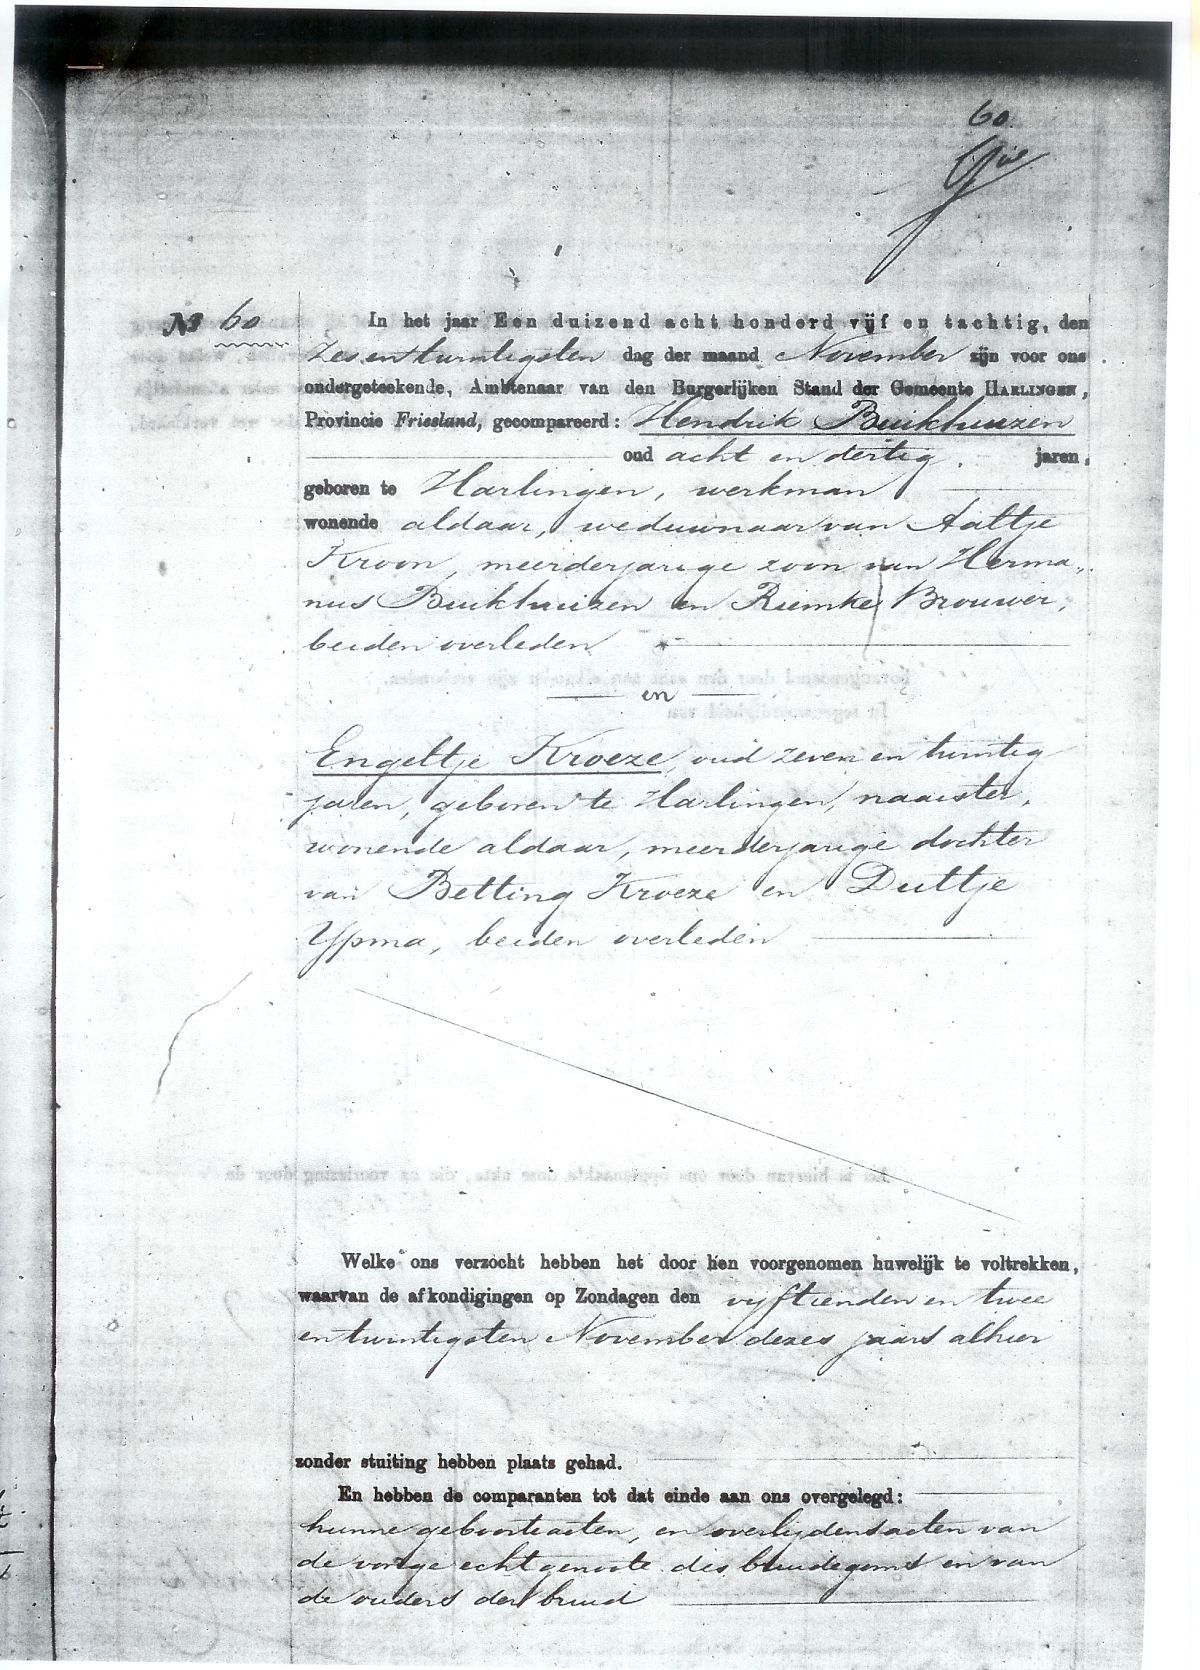 60
No 60
In het jaar Een duizend acht honderd vijf en tachtig, den
Zesentwintigsten dag der maand November zijn voor ons
ondergeteekende, Ambtenaar van den Burgerlijken Stand der Gemeente HARLINGEN,
Provincie Friesland, gecompareerd: Hendrik Buikhuizen
oud acht en dertig jaren,
geboren te Harlingen, werkman
wonende aldaar, weduwnaar van Aaltje
Kroon, meerderjarige zoon van Herma„
nus Buikhuizen en Riemke Brouwer,
beiden overleden
en
Engeltje Kroeze, oud zeven en twintig
jaren, geboren te Harlingen, naaister,
wonende aldaar, meerderjarige dochter
van Betting Kroeze en Duttje
Ypma, beiden overleden
Welke ons verzocht hebben het door hen voorgenomen huwelijk te voltrekken,
waarvan de afkondigingen op Zondagen den vyftienden en twee
en twintigsten November dezes jaars alhier
zonder stuiting hebben plaats gehad.
En hebben de comparanten tot dat einde aan ons overgelegd:
hunne geboorteacten, en overlydensacten van
de vorige echtgenoote des bruidegoms en van
de ouders der bruid